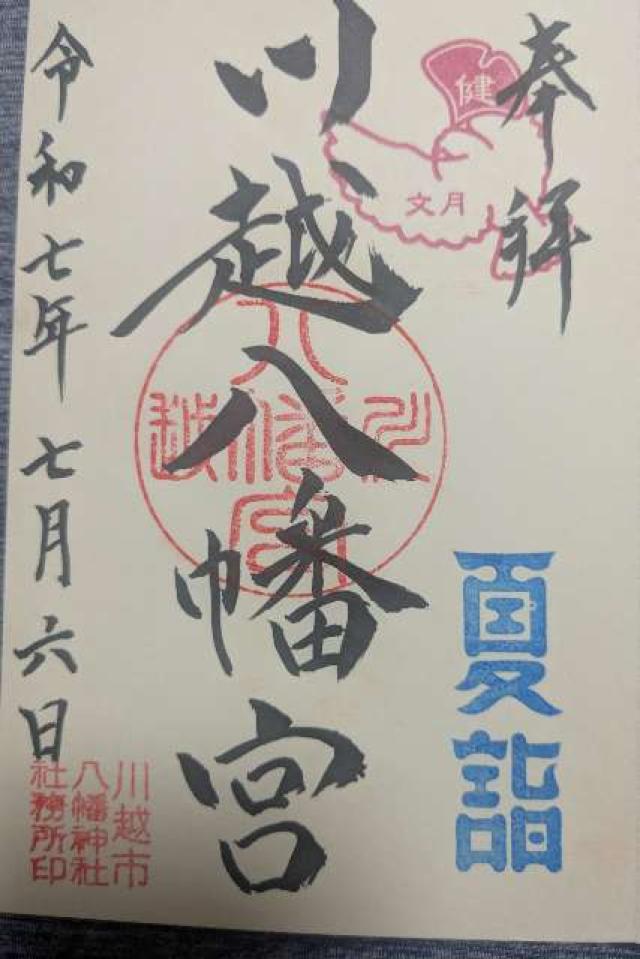 奉拝
健
文月
夏詣
川越八幡宮
川越八幡宮
令和七年七月六日
川越市
八幡神社
社務所印